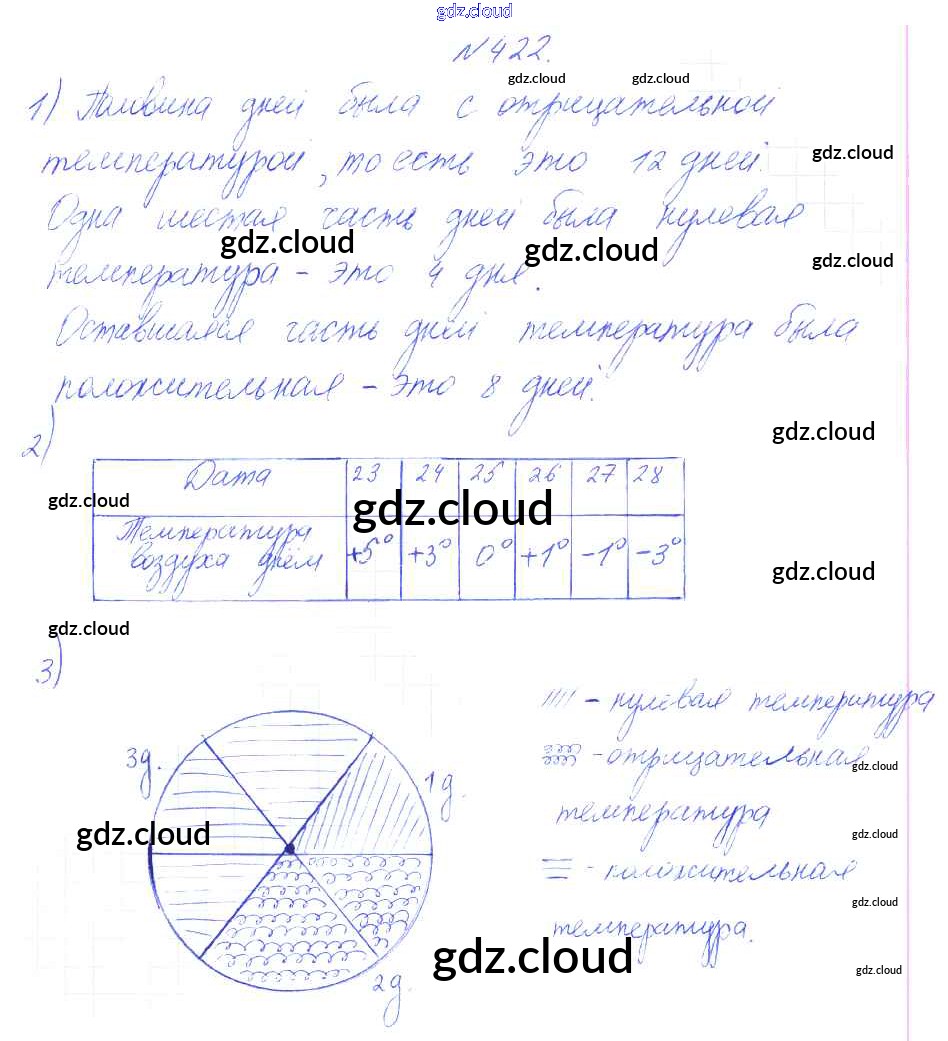 gdz.cloud
N422.
gdz.cloud gdz.cloud
1) Половина дней была с отрицательной
температурой, то есть это 12 дней.
gdz.cloud
Одна шестая часть дней была нулевая
gdz.cloud gdz.cloud gdz.cloud
температура – это 4 дня.
Оставшаяся часть дней температура была
положительная – это 8 дней.
gdz.cloud
2)
Дата 23 24 25 26 27 28
gdz.cloud gdz.cloud
Температура
воздуха днём +5° +3° 0° +1° -1° -3°
gdz.cloud
gdz.cloud
3)
//// – нулевая температура
3д. – отрицательная
gdz.cloud
1д.
температура
gdz.cloud gdz.cloud
– положительная
gdz.cloud
температура.
gdz.cloud gdz.cloud
2д.